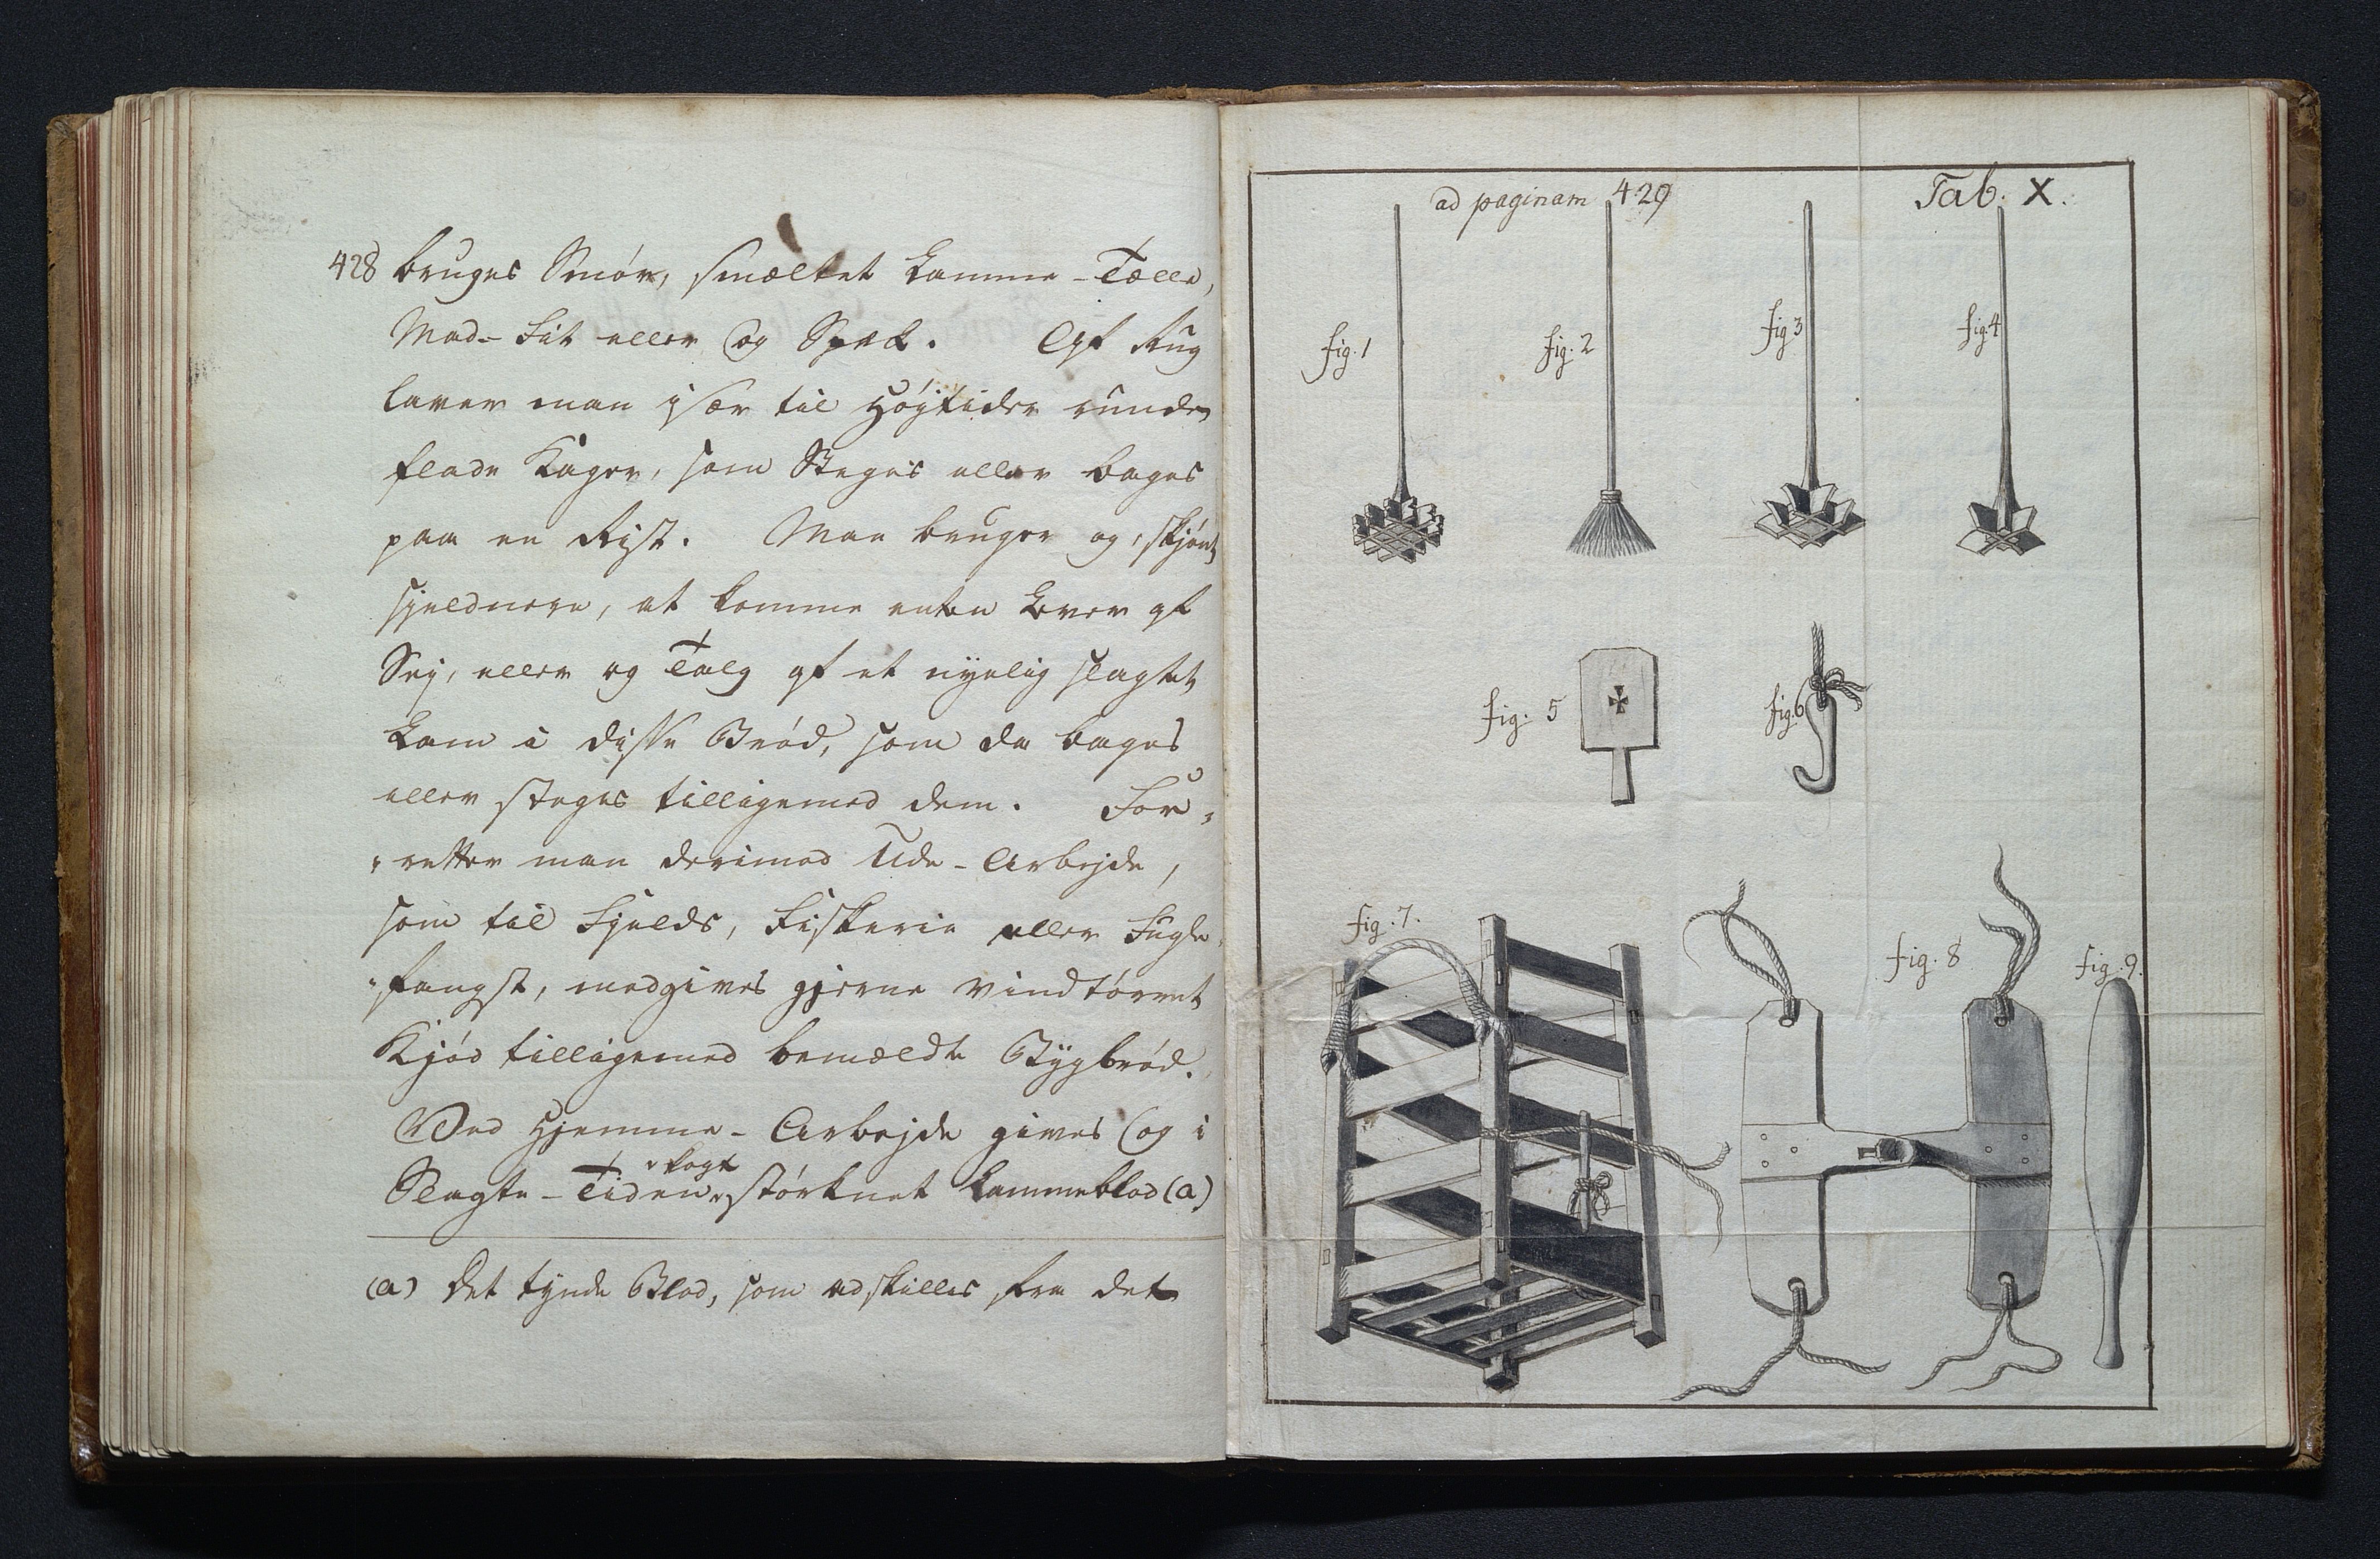 428 bruges Smör, smæltet Lamme-Tælle,
Mad-Fit eller og Spæk. Af Rug
laver man især til Höjtider runde
flade Kager, som Steges eller bages
paa en Rist. Man bruger og, skjönt
sjeldnere, at komme enten Lever af
Sej, eller og Talg af et nyelig slagtet
Lam i disse Bröd, som da bages
eller steges tilligemed dem. For-
retter man derimod Ude-Arbejde,
som til Fjelds, Fiskerie eller Fugle-
fangst, medgives gjerne vindtörret
Kjöd tilligemed bemældte Bygbröd.
Ved Hjemme-Arbejde gives og i
kogt
Slagte-Tiden störknet Lammeblod (a)
(a) Det tynde Blod, som adskilles fra det
ad paginam 429
Tab. X.
fig. 1
fig. 2
fig 3
fig. 4
fig. 5
fig. 6
fig. 7.
fig. 8
fig. 9.